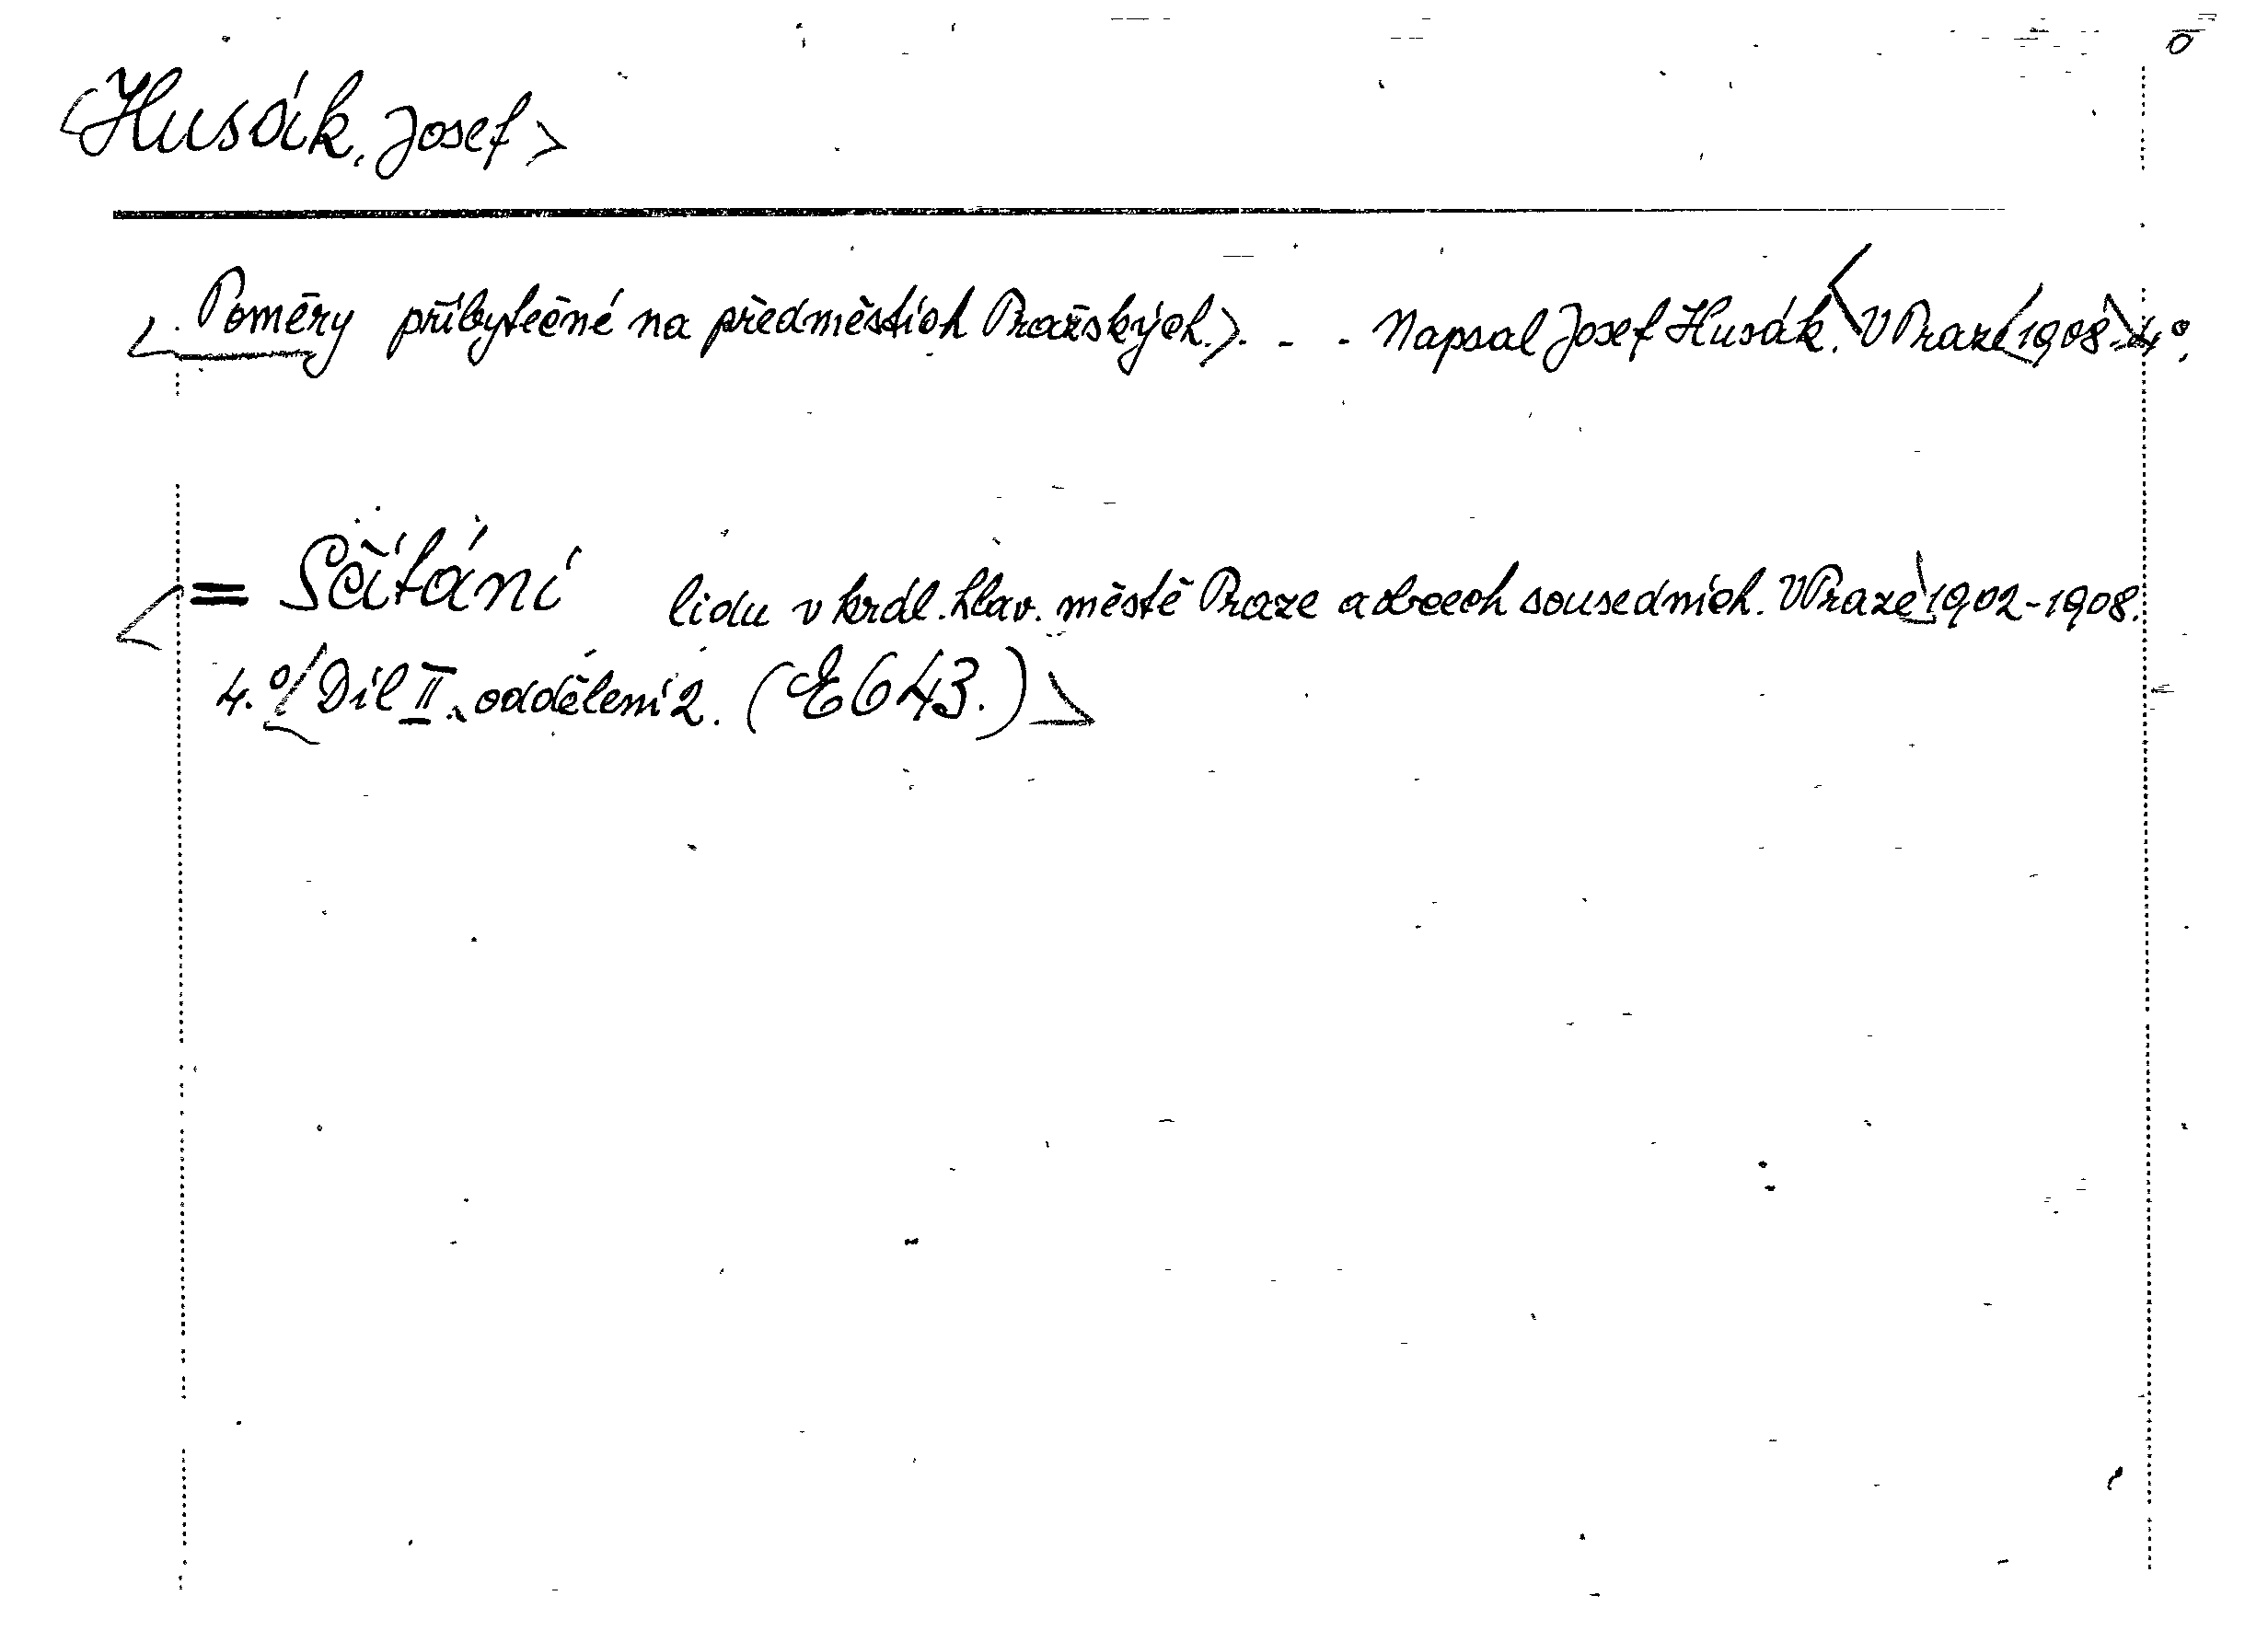 <Husák, Josef>
<Poměry příbytečné na předměstích Pražských.>. - - Napsal Josef Husák. V Praze 1908. 4°.
= Sčítání lidu v král. hlav. městě Praze a obcech sousedních. V Praze 1902-1908.
4.° Díl II., oddělení 2. (E 643.)>